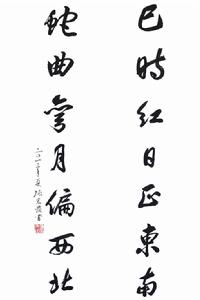 巳時紅日正東南
蛇曲彎月偏西北
二〇一三年夏